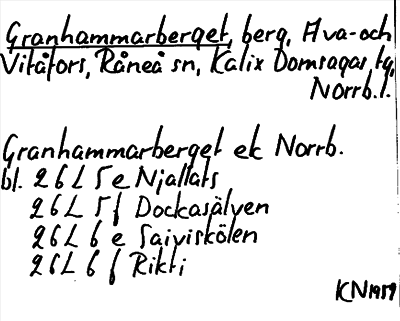 Granhammarberget, berg, Alva-och
Vitåfors, Råneå sn, Kalix Domsagas tg,
Norrb.l.
Granhammarberget ek Norrb.
bl. 26L 5e Njallats
26L 5f Dockasälven
26L 6e Saiviskölen
26L 6f Rikti
KN 1959